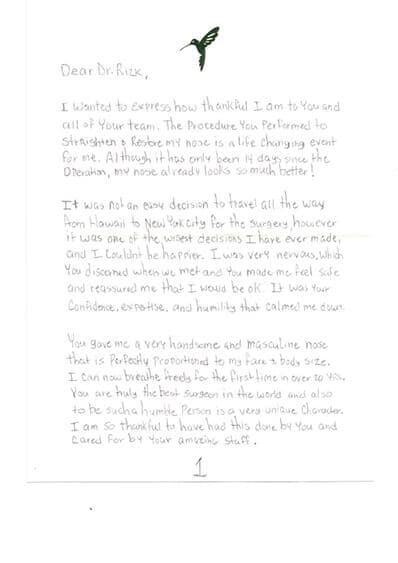 Dear Dr. Rizk,
I wanted to express how thankful I am to you and
all of your team. The Procedure you performed to
Straighten & Restore my nose is a life changing event
for me. Although it has only been 14 days since the
operation, my nose already looks so much better!
It was not an easy decision to travel all the way
from Hawaii to New York city for the surgery, however
it was one of the wisest decisions I have ever made,
and I couldn't be happier. I was very nervous, which
you discerned when we met and you made me feel safe
and reassured me that I would be OK. It was your
confidence, expertise, and humility that calmed me down.
You gave me a very handsome and masculine nose
that is perfectly proportioned to my face & body size.
I can now breathe freely for the first time in over 20 yrs.
You are truly the best surgeon in the world and also
to be such a humble Person is a very unique character.
I am so thankful to have had this done by you and
cared for by your amazing staff.
1